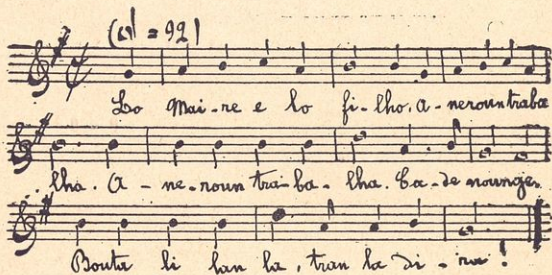 (♩ = 92)
Lo Mai-re e lo fi-lho, A-neroun traba
lha. A-ne-roun tra-ba-lha. Ca-de nounge.
Bouta li lan la, tran la di-ra!